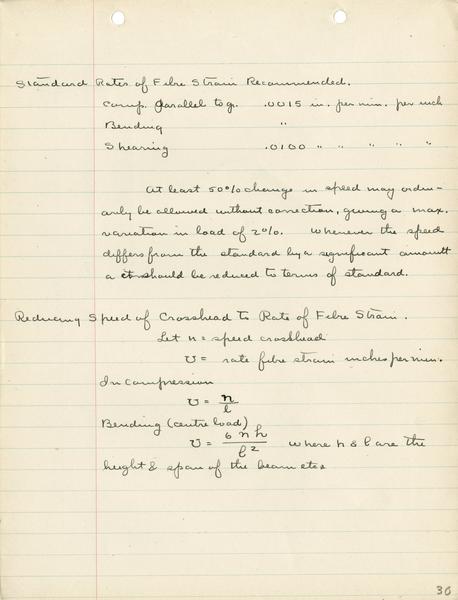 Standard Rates of Fibre Strain Recommended.
Comp. Parallel to gr. .0015 in. per min. per inch
Bending "
Shearing .0100 " " " "
At least 50% change in speed may ordin-
arily be allowed without correction, giving a max.
variation in load of 2%. Whenever the speed
differs from the standard by a significant amount
a it should be reduced to terms of standard.
Reducing Speed of Crosshead to Rate of Fibre Strain.
Let n = speed crosshead
υ = rate fibre strain inches per min.
In compression
υ = n/l
Bending (centre load)
υ = 6nh/l² where h & l are the
height & span of the beam etc
36